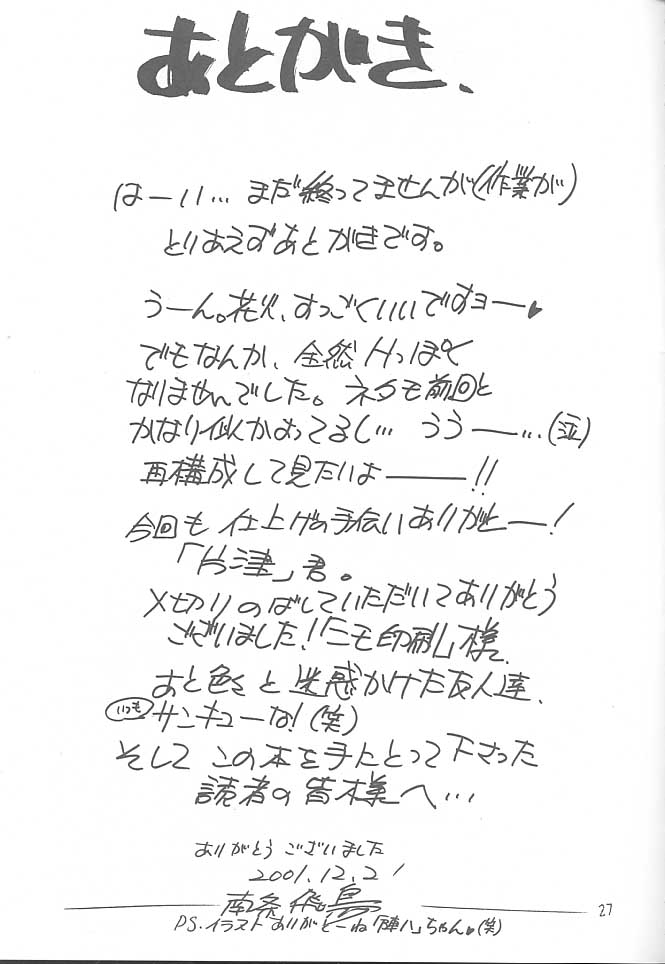 あとがき、
はーい… まだ終ってませんが(作業が)
とりあえずあとがきです。
うーん。花火、すっごくいいですヨー♥
でもなんか、全然Hっぽく
なりませんでした。ネタも前回と
かなり似かよってるし… うぅー…(泣)
再構成して見たいよー!!
今回も 仕上げの手伝いありがとー!
「片津」君。
〆切りのばしていただいてありがとう
ございました!「ニモ印刷」様。
あと色々と迷惑かけた友人達、
いつも サンキューな!(笑)
そして この本を手にとって下さった
読者の皆様へ…
ありがとう ございました
2001.12.21
南条飛鳥
PS.イラストありがとーね「陣八」ちゃん♥(笑)
27